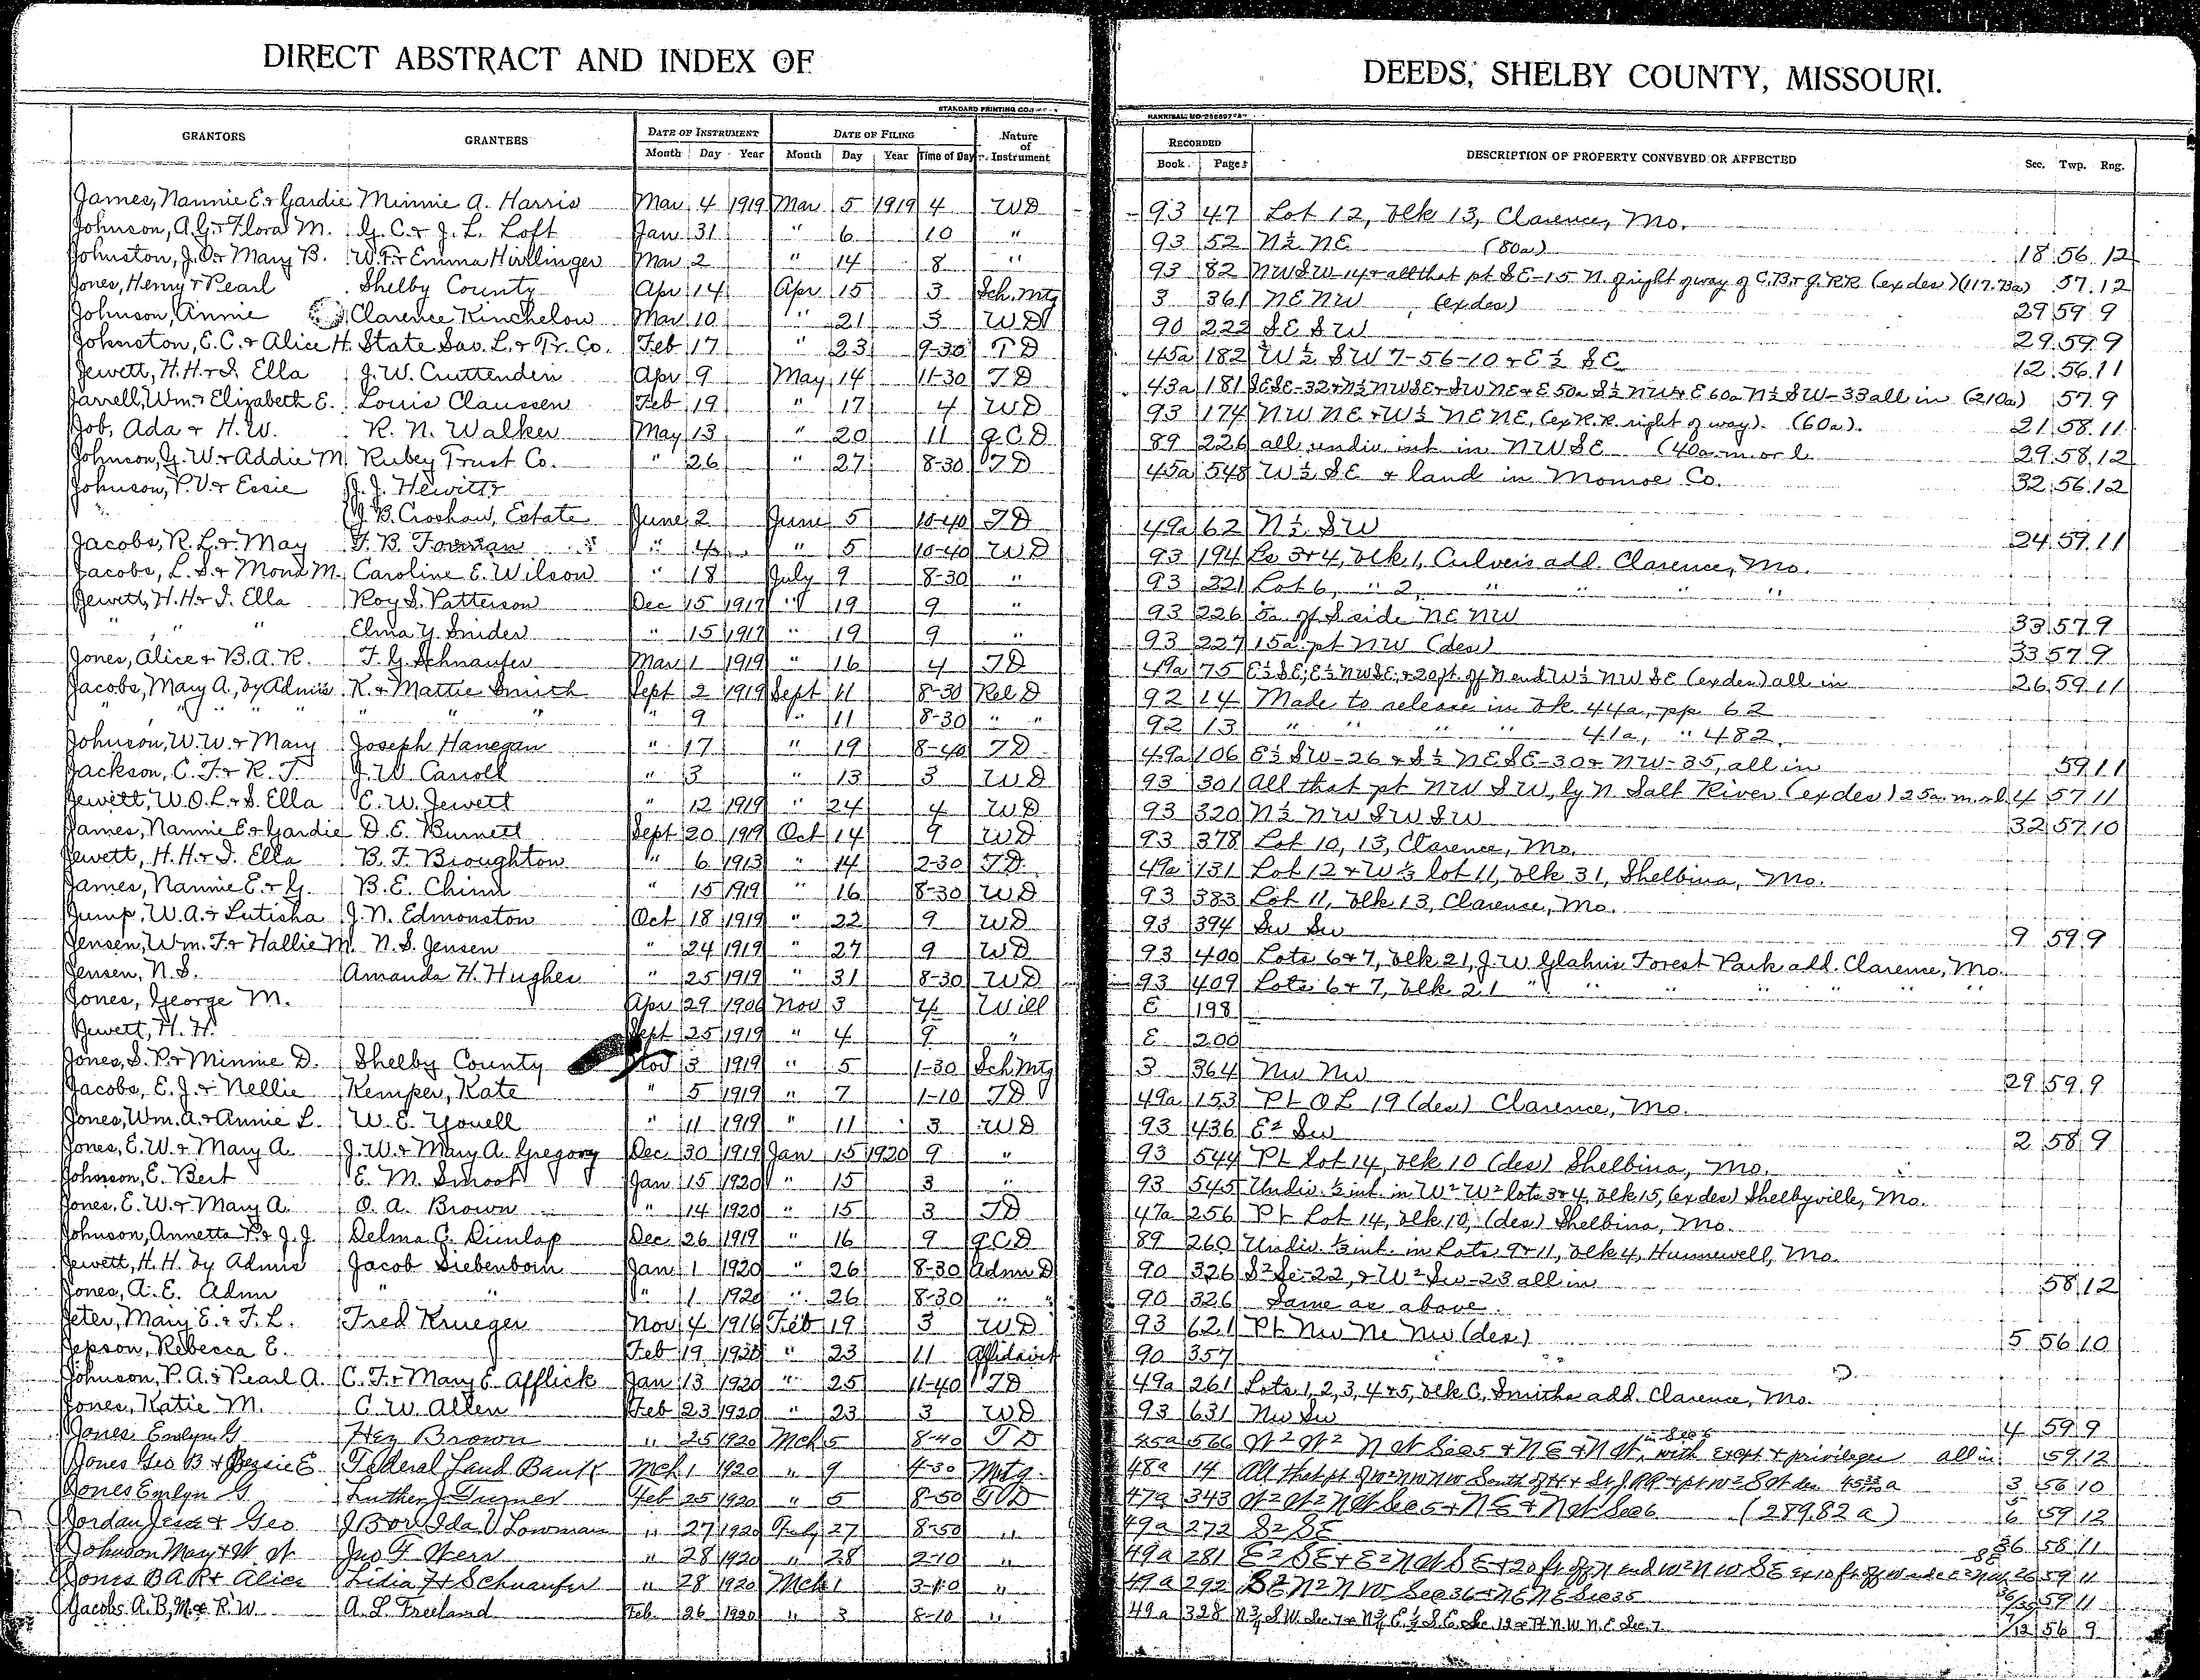 DIRECT ABSTRACT AND INDEX OF DEEDS, SHELBY COUNTY, MISSOURI.
STANDARD PRINTING CO.
GRANTORS GRANTEES DATE OF INSTRUMENT DATE OF FILING Nature of Instrument RECORDED DESCRIPTION OF PROPERTY CONVEYED OR AFFECTED Sec. Twp. Rng.
Month Day Year Month Day Year Time of Day Book Pages
James, Nannie E. & Gardie Minnie A. Harris Mar 4 1919 Mar 5 1919 4 WD 93 47 Lot 12, Blk 13, Clarence, Mo.
Johnson, A.G. & Flora M. G. C. & J. L. Loft Jan 31 " 6 10 " 93 52 N½ NE (80a) 18 56 12
Johnston, J.O. & Mary B. W.F. & Emma Hirlinger Mar 2 " 14 8 " 93 82 NWSW-14 & all that pt SE-15 N. of right of way of C.B. & Q. RR (ex des) (117.73a) 57 12
Jones, Henry & Pearl Shelby County Apr 14 Apr 15 3 Sch. Mtg 3 361 NE NW (ex des) 29 59 9
Johnson, Annie Clarence Kinchelow Mar 10 " 21 3 WD 90 222 SE SW 29 59 9
Johnston, E.C. & Alice H. State Sav. L. & Tr. Co. Feb 17 " 23 9-30 TD 45a 182 W½ SW 7-56-10 & E½ SE 12 56 11
Jewett, H.H. & S. Ella J. W. Cruttenden Apr 9 May 14 11-30 TD 43a 181 SESE-32 & N½ NWSE & SW NE & E 50a S½ NW & E 60a N½ SW-33 all in (210a) 57 9
Jarrell, Wm. & Elizabeth E. Louis Claussen Feb 19 " 17 4 WD 93 174 NW NE & W½ NE NE, (ex R.R. right of way). (60a). 21 58 11
Job, Ada & H.W. R. N. Walker May 13 " 20 11 QCD 89 226 all undiv int in NWSE (40a m. or l. 29 58 12
Johnson, G. W. & Addie M. Rubey Trust Co. " 26 " 27 8-30 TD 45a 548 W½ SE & land in Monroe Co. 32 56 12
Johnson, P.V. & Essie J. J. Hewitt &
J. B. Croshaw, Estate June 2 June 5 10-40 TD 49a 62 N½ SW 24 59 11
Jacobs, R. L. & May F. B. Forman " 4 " 5 10-40 WD 93 194 Ls 3 & 4, Blk 1, Culver's add. Clarence, Mo.
Jacobs, L. S. & Mona M. Caroline E. Wilson " 18 July 9 8-30 " 93 221 Lot 6, " 2, " " " "
Jewett, H.H. & S. Ella Roy S. Patterson Dec 15 1917 " 19 9 " 93 226 5a of S side NE NW 33 57 9
" " " Elma Y. Snider " 15 1917 " 19 9 " 93 227 15a pt NW (des) 33 57 9
Jones, Alice & B.A.R. F. G. Schnaufer Mar 1 1919 " 16 4 TD 49a 75 E½ SE; E½ NWSE; & 20 ft. off N end W½ NW SE (ex des) all in 26 59 11
Jacobs, Mary A., by Admix K. & Mattie Smith Sept 2 1919 Sept 11 8-30 Rel D 92 14 Made to release in Bk 44a, pp 62
" " " " " " " " 9 " 11 8-30 " " 92 13 " " " " 41a, " 482.
Johnson, W.W. & Mary Joseph Hanegan " 17 " 19 8-40 TD 49a 106 E½ SW-26 & S½ NESE-30 & NW-35, all in 59 11
Jackson, C. F. & R. T. J. W. Carroll " 3 " 13 3 WD 93 301 All that pt NW SW, ly N. Salt River (ex des) 25a. m. or l. 4 57 11
Jewett, W.O.L. & S. Ella E. W. Jewett " 12 1919 " 24 4 WD 93 320 N½ NW SW SW 32 57 10
James, Nannie E. & Gardie D. E. Burnett Sept 20 1919 Oct 14 9 WD 93 378 Lot 10, 13, Clarence, Mo.
Jewett, H.H. & S. Ella B. F. Broughton " 6 1913 " 14 2-30 TD 49a 131 Lot 12 & W⅓ lot 11, Blk 31, Shelbina, Mo.
James, Nannie E. & G. B. E. Chinn " 15 1919 " 16 8-30 WD 93 383 Lot 11, Blk 13, Clarence, Mo.
Jump, W. A. & Lutisha J. N. Edmonston Oct 18 1919 " 22 9 WD 93 394 Sw Sw 9 59 9
Jensen, Wm. F. & Hallie M. N. S. Jensen " 24 1919 " 27 9 WD 93 400 Lots 6 & 7, Blk 21, J. W Glahn's Forest Park add. Clarence, Mo.
Jensen, N. S. Amanda H. Hughes " 25 1919 " 31 8-30 WD 93 409 Lots 6 & 7, Blk 21 " " " " " "
Jones, George M. Apr 29 1906 Nov 3 4 Will E 198
Jewett, H. H. Sept 25 1919 " 4 9 " E 200
Jones, S. P. & Minnie D. Shelby County Nov 3 1919 " 5 1-30 Sch Mtg 3 364 Nw Nw 29 59 9
Jacobs, E. J. & Nellie Kemper, Kate " 5 1919 " 7 1-10 TD 49a 153 Pt O L 19 (des) Clarence, Mo.
Jones, Wm. A. & Annie L. W. E. Youell " 11 1919 " 11 3 WD 93 436 E² Sw 2 58 9
Jones, E. W. & Mary A. J. W. & Mary A. Gregory Dec 30 1919 Jan 15 1920 9 " 93 544 Pt lot 14, Blk 10 (des) Shelbina, Mo.
Johnson, E. Bert E. M. Smoot Jan 15 1920 " 15 3 " 93 545 Undiv. ½ int. in W² W² lots 3 & 4, Blk 15, (ex des) Shelbyville, Mo.
Jones, E. W. & Mary A. O. A. Brown " 14 1920 " 15 3 TD 47a 256 Pt Lot 14, Blk 10, (des) Shelbina, Mo.
Johnson, Annetta P. & J. J. Delma C. Dunlap Dec 26 1919 " 16 9 QCD 89 260 Undiv. ⅓ int. in Lots 9 & 11, Blk 4, Hunnewell, Mo.
Jewett, H. H. by Admr Jacob Siebenborn Jan 1 1920 " 26 8-30 Admr D 90 326 S² Se-22, & W² Sw-23 all in 58 12
Jones, A. E. Admr " " " 1 1920 " 26 8-30 " " 90 326 Same as above.
Jeter, Mary E. & F. L. Fred Krueger Nov 4 1916 Feb 19 3 WD 93 621 Pt Nw Ne Nw (des) 5 56 10
Jepson, Rebecca E. Feb 19 1920 " 23 11 Affidavit 90 357
Johnson, P. A. & Pearl A. C. F. & Mary E. Afflick Jan 13 1920 " 25 11-40 TD 49a 261 Lots 1, 2, 3, 4 & 5, Blk C, Smiths add. Clarence, Mo.
Jones, Katie M. C. W. Allen Feb 23 1920 " 23 3 WD 93 631 Nw Sw 4 59 9
Jones Emlyn G Hez Brown " 25 1920 Mch 5 8-40 TD 45a 566 W² W² N W Sec 5 & NE & N W, in Sec 6 with except & privileges all in 59 12
Jones Geo B & Bessie E Federal Land Bank Mch 1 1920 " 9 4-30 Mtg. 48a 14 All that pt of W² NW NW South of H & St J RR & pt W² S W des 3 56 10
Jones Emlyn G Luther J. Turner Feb 25 1920 " 5 8-50 TD 47a 343 W² W² N W Sec 5 & NE & N W Sec 6 (289.82 a) 5 6 59 12
Jordan Jess & Geo J B or Ida V Lowman " 27 1920 Feby 27 8-50 " 49a 272 S² SE 36 58 11
Johnson May & W. W Jno F " 28 1920 " 28 2-10 " 49a 281 E² SE & E² N W S E & 20 ft off N end W² N W SE 26 59 11
Jones B A R & Alice Lidia F Schnaufer " 28 1920 Mch 1 3-10 " 49a 292 N² N W Sec 36 & NE NE Sec 35 36/35 59 11
Jacobs A. B, M. & R. W A. L. Freeland Feb. 26 1920 " 3 8-10 " 49a 328 N¾ S.W. Sec. 7 & N¾ E. ½ S. E. Sec. 12 & Pt N.W. N.E Sec. 7 7/12 56 9